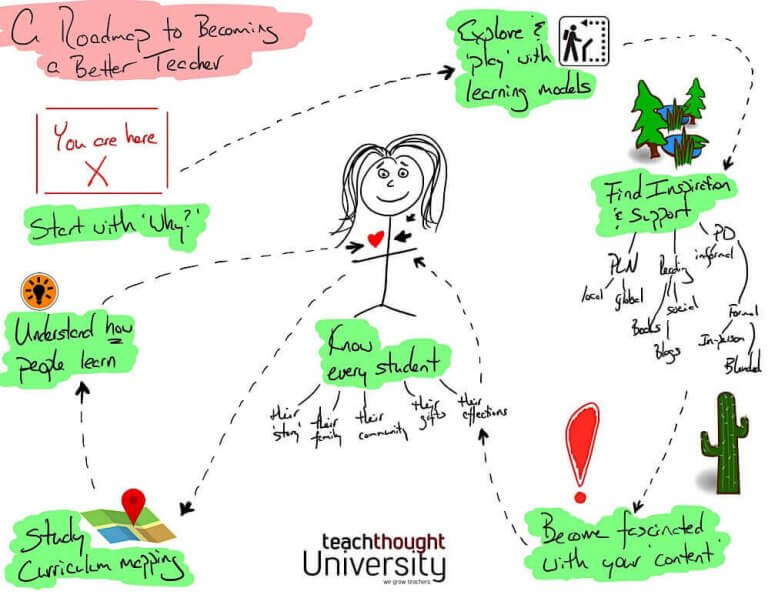 A Roadmap to Becoming
a Better Teacher
You are here
X
Start with 'Why?'
Explore &
'play' with
learning models
Find Inspiration
& Support
PLN
local
global
Reading
Books
social
Blogs
PD
informal
Formal
In-person
Blended
Become fascinated
with your 'content'
Know
every student
their
'story'
their
family
their
community
their
gifts
their
affections
Study
Curriculum mapping
Understand how
people learn
teachthought
University
we grow teachers.